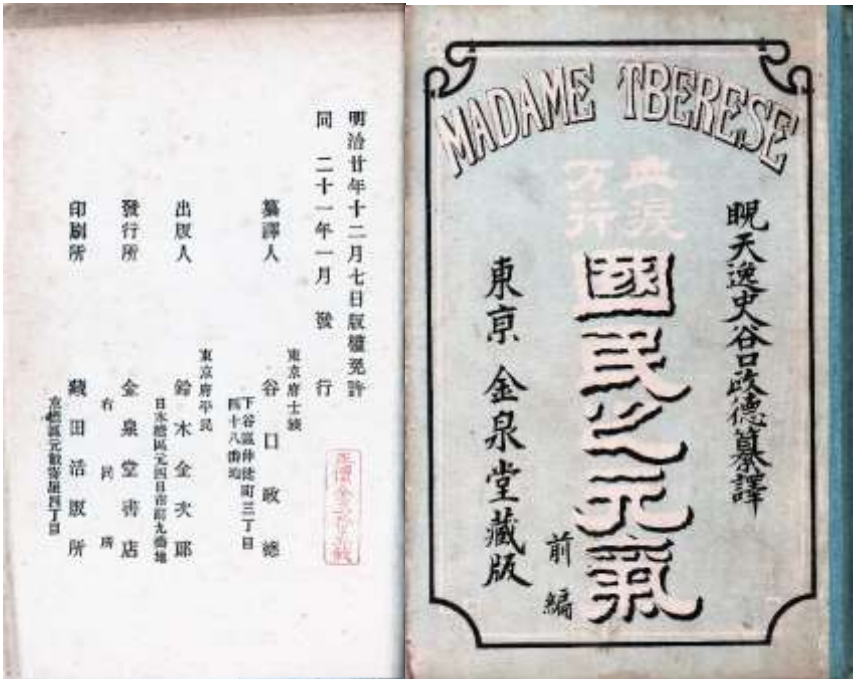 MADAME TBERESE
睨天逸史谷口政徳纂譯
血淚
万行
國民之元氣
前編
東京 金泉堂藏版
明治廿年十二月七日版權免許
同 二十一年一月發行
東京府士族
纂譯人 谷口政德
下谷區仲徒町三丁目
四十八番地
東京府平民
出版人 鈴木金次郎
日本橋區元四日市町九番地
發行所 金泉堂書店
右同所
印刷所 藏田活版所
京橋區元數寄屋町四丁目